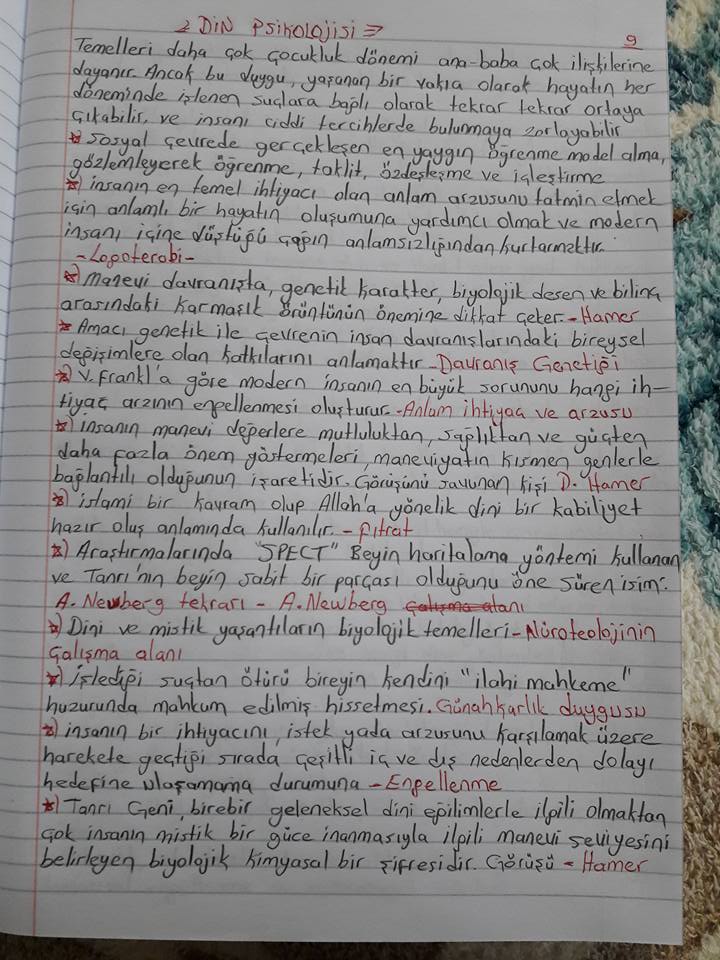 2 DİN PSİKOLOJİSİ ⇒
9
Temelleri daha çok çocukluk dönemi ana-baba çok ilişkilerine
dayanır. Ancak bu duygu, yaşanan bir vakıa olarak hayatın her
döneminde işlenen suçlara bağlı olarak tekrar tekrar ortaya
çıkabilir, ve insanı ciddi tercihlerde bulunmaya zorlayabilir
*) Sosyal çevrede gerçekleşen en yaygın öğrenme model alma,
gözlemleyerek öğrenme, taklit, özdeşleşme ve içleştirme
*) insanın en temel ihtiyacı olan anlam arzusunu tatmin etmek
için anlamlı bir hayatın oluşumuna yardımcı olmak ve modern
insanı içine düştüğü çağın anlamsızlığından kurtarmaktır.
-Logoterobi-
*) Manevi davranışta, genetik karakter, biyolojik desen ve bilinç
arasındaki karmaşık örüntünün önemine dikkat çeker.-Hamer
*) Amacı genetik ile çevrenin insan davranışlarındaki bireysel
değişimlere olan katkılarını anlamaktır-Davranış Genetiği
*) V. Frankl'a göre modern insanın en büyük sorununu hangi ih-
tiyaç arzının engellenmesi oluşturur.-Anlam ihtiyacı ve arzusu
*) insanın manevi değerlere mutluluktan, sağlıktan ve güçten
daha fazla önem göstermeleri, maneviyatın kısmen genlerle
bağlantılı olduğunun işaretidir. Görüşünü savunan kişi D. Hamer
*) islami bir kavram olup Allah'a yönelik dini bir kabiliyet
hazır oluş anlamında kullanılır. - fıtrat
*) Araştırmalarında "SPECT" Beyin haritalama yöntemi kullanan
ve Tanrı'nın beyin sabit bir parçası olduğunu öne süren isim:
A. Newberg tekrarı - A. Newberg çalışma alanı
*) Dini ve mistik yaşantıların biyolojik temelleri-Nüroteolojinin
çalışma alanı
*) İşlediği suçtan ötürü bireyin kendini "ilahi mahkeme"
huzurunda mahkum edilmiş hissetmesi. Günahkarlık duygusu
*) insanın bir ihtiyacını, istek yada arzusunu karşılamak üzere
harekete geçtiği sırada çeşitli iç ve dış nedenlerden dolayı
hedefine ulaşamama durumuna - Engellenme
*) Tanrı Geni, birebir geleneksel dini eğilimlerle ilgili olmaktan
çok insanın mistik bir güce inanmasıyla ilgili manevi seviyesini
belirleyen biyolojik kimyasal bir şifresidir. Görüşü - Hamer